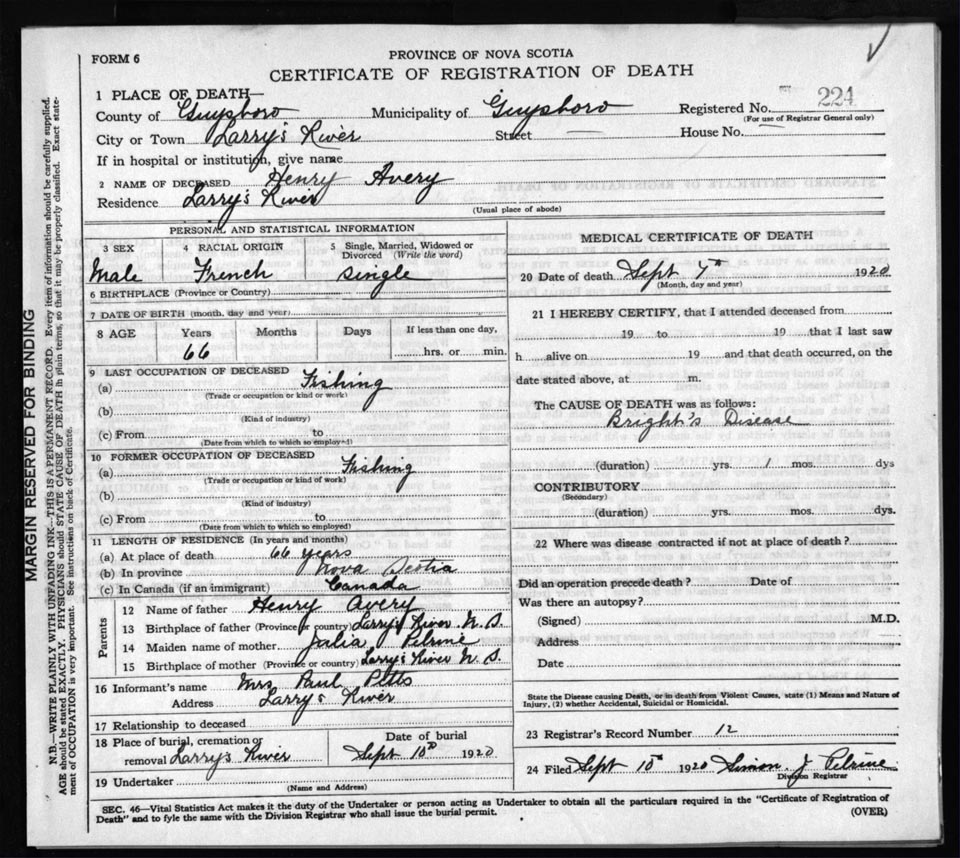 FORM 6
PROVINCE OF NOVA SCOTIA
CERTIFICATE OF REGISTRATION OF DEATH
1 PLACE OF DEATH—
County of Guysboro Municipality of Guysboro Registered No. 224
(For use of Registrar General only)
City or Town Larry's River Street — House No. —
If in hospital or institution, give name —
2 NAME OF DECEASED Henry Avery
Residence Larry's River
(Usual place of abode)
PERSONAL AND STATISTICAL INFORMATION
3 SEX 4 RACIAL ORIGIN 5 Single, Married, Widowed or Divorced (Write the word)
Male French Single
6 BIRTHPLACE (Province or Country)
7 DATE OF BIRTH (month, day and year)
8 AGE Years Months Days If less than one day,
66 hrs. or min.
9 LAST OCCUPATION OF DECEASED
(a) Fishing
(Trade or occupation or kind or work)
(b)
(Kind of industry)
(c) From to
(Date from which to which so employed)
10 FORMER OCCUPATION OF DECEASED
(a) Fishing
(Trade or occupation or kind of work)
(b)
(Kind of industry)
(c) From to
(Date from which to which so employed)
11 LENGTH OF RESIDENCE (In years and months)
(a) At place of death 66 years
(b) In province Nova Scotia
(c) In Canada (if an immigrant) Canada
Parents
12 Name of father Henry Avery
13 Birthplace of father (Province or country) Larry's River N.S.
14 Maiden name of mother Julia Pelrine
15 Birthplace of mother (Province or country) Larry's River N.S.
16 Informant's name Mrs Paul Petts
Address Larry's River
17 Relationship to deceased
18 Place of burial, cremation or removal Larry's River
Date of burial
Sept 10th 1920
19 Undertaker
(Name and Address)
MEDICAL CERTIFICATE OF DEATH
20 Date of death Sept 7th 1920
(Month, day and year)
21 I HEREBY CERTIFY, that I attended deceased from
19 to 19 that I last saw
h alive on 19 and that death occurred, on the
date stated above, at m.
The CAUSE OF DEATH was as follows:
Bright's Disease
(duration) yrs. 1 mos. dys
CONTRIBUTORY
(Secondary)
(duration) yrs. mos. dys.
22 Where was disease contracted if not at place of death?
Did an operation precede death? Date of
Was there an autopsy?
(Signed) M.D.
Address
Date
State the Disease causing Death, or in death from Violent Causes, state (1) Means and Nature of
Injury, (2) whether Accidental, Suicidal or Homicidal.
23 Registrar's Record Number 12
24 Filed Sept 10th 1920 Simon J Pelrine
Division Registrar
SEC. 46—Vital Statistics Act makes it the duty of the Undertaker or person acting as Undertaker to obtain all the particulars required in the "Certificate of Registration of
Death" and to fyle the same with the Division Registrar who shall issue the burial permit.
(OVER)
MARGIN RESERVED FOR BINDING
N.B.—WRITE PLAINLY WITH UNFADING INK—THIS IS A PERMANENT RECORD. Every item of information should be carefully supplied.
AGE should be stated EXACTLY. PHYSICIANS should STATE CAUSE OF DEATH in plain terms, so that it may be properly classified. Exact state-
ment of OCCUPATION is very important. See instructions on back of Certificate.